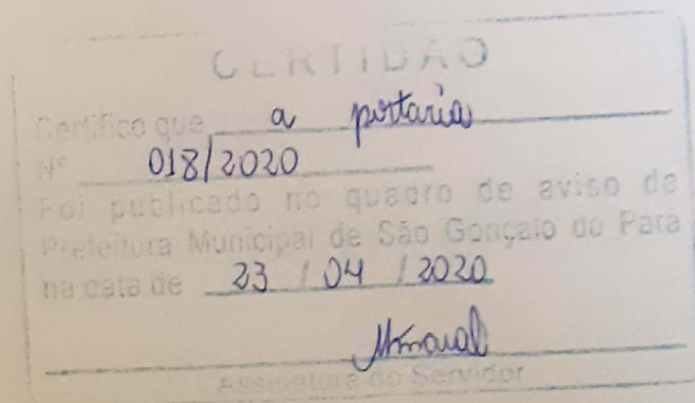 CERTIDÃO
Certifico que a portaria
Nº 018/2020
Foi publicado no quadro de aviso da
Prefeitura Municipal de São Gonçalo do Pará
na data de 23 / 04 / 2020
Assinatura do Servidor